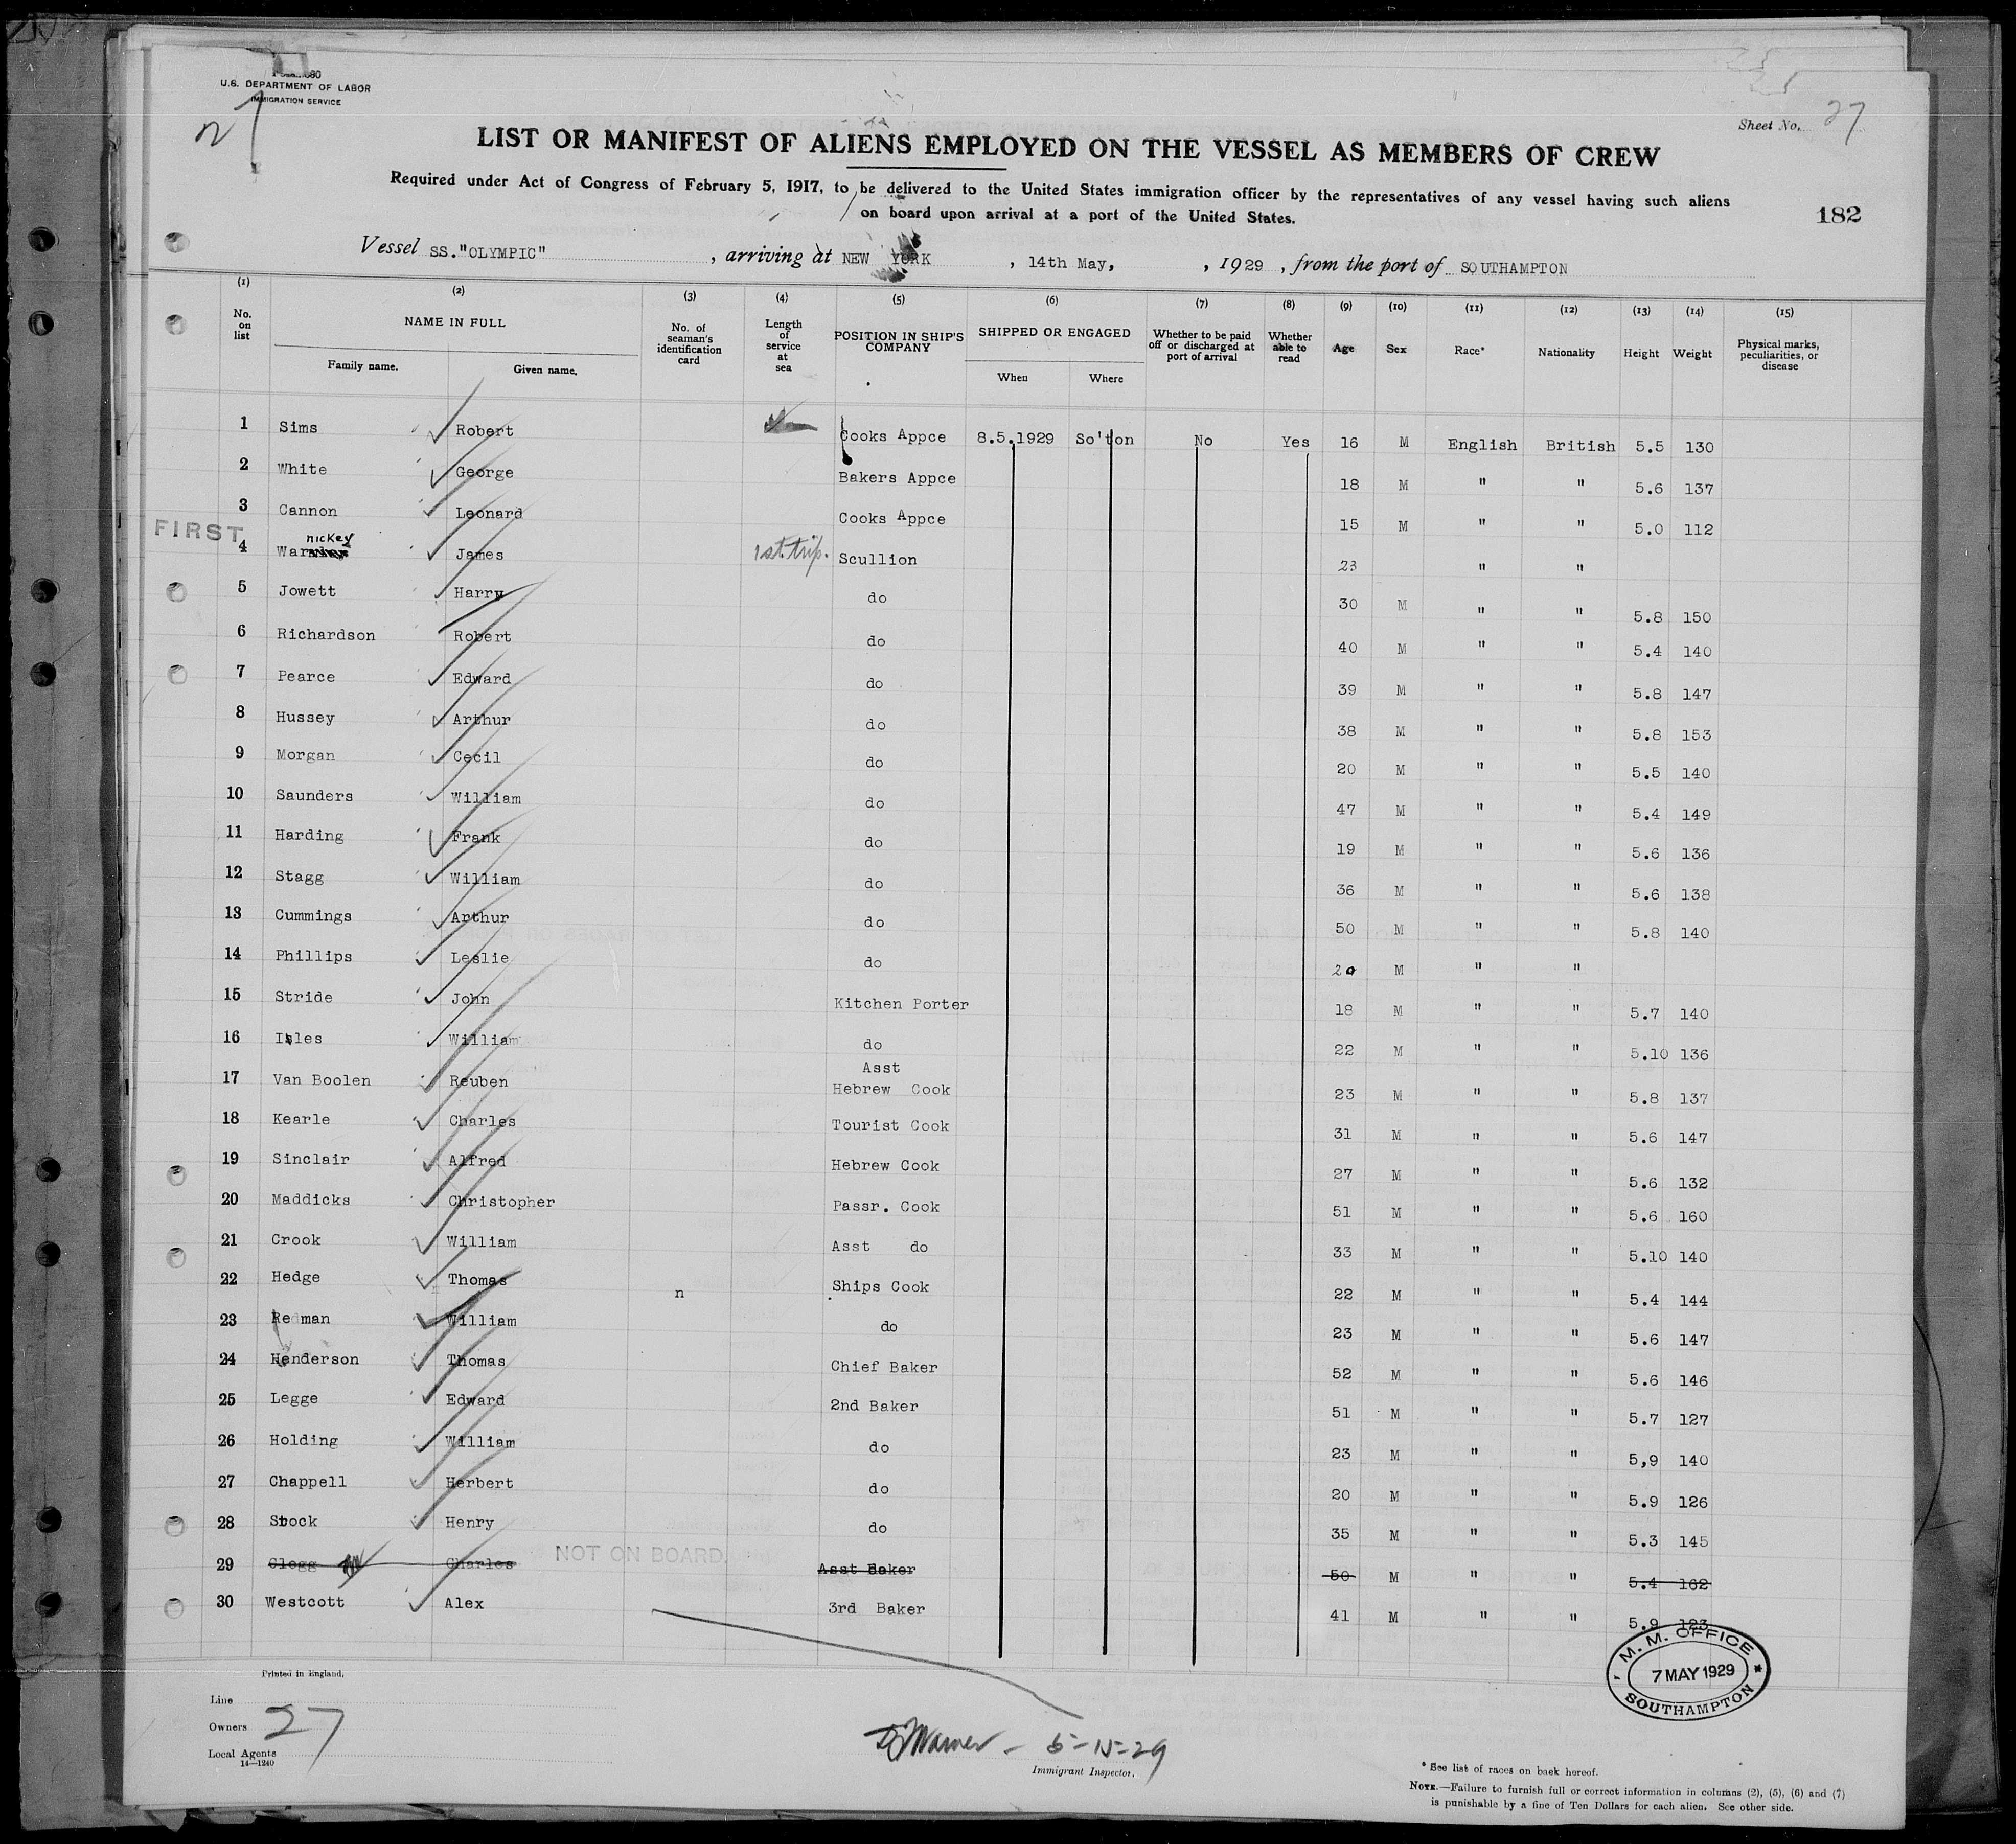 U.S. DEPARTMENT OF LABOR
IMMIGRATION SERVICE
27
Sheet No. 27
LIST OR MANIFEST OF ALIENS EMPLOYED ON THE VESSEL AS MEMBERS OF CREW
Required under Act of Congress of February 5, 1917, to be delivered to the United States immigration officer by the representatives of any vessel having such aliens
on board upon arrival at a port of the United States.
182
Vessel SS."OLYMPIC" , arriving at NEW YORK , 14th May, , 1929 , from the port of SOUTHAMPTON
(1) (2) (3) (4) (5) (6) (7) (8) (9) (10) (11) (12) (13) (14) (15)
No. on list NAME IN FULL No. of seaman's identification card Length of service at sea POSITION IN SHIP'S COMPANY SHIPPED OR ENGAGED Whether to be paid off or discharged at port of arrival Whether able to read Age Sex Race* Nationality Height Weight Physical marks, peculiarities, or disease
Family name. Given name. When Where
1 Sims Robert Cooks Appce 8.5.1929 So'ton No Yes 16 M English British 5.5 130
2 White George Bakers Appce 18 M " " 5.6 137
3 Cannon Leonard Cooks Appce 15 M " " 5.0 112
FIRST
4 Warnickey James 1st. trip. Scullion 23 " "
5 Jowett Harry do 30 M " " 5.8 150
6 Richardson Robert do 40 M " " 5.4 140
7 Pearce Edward do 39 M " " 5.8 147
8 Hussey Arthur do 38 M " " 5.8 153
9 Morgan Cecil do 20 M " " 5.5 140
10 Saunders William do 47 M " " 5.4 149
11 Harding Frank do 19 M " " 5.6 136
12 Stagg William do 36 M " " 5.6 138
13 Cummings Arthur do 50 M " " 5.8 140
14 Phillips Leslie do 20 M " "
15 Stride John Kitchen Porter 18 M " " 5.7 140
16 Isles William do 22 M " " 5.10 136
17 Van Boolen Reuben Asst Hebrew Cook 23 M " " 5.8 137
18 Kearle Charles Tourist Cook 31 M " " 5.6 147
19 Sinclair Alfred Hebrew Cook 27 M " " 5.6 132
20 Maddicks Christopher Passr. Cook 51 M " " 5.6 160
21 Crook William Asst do 33 M " " 5.10 140
22 Hedge Thomas n Ships Cook 22 M " " 5.4 144
23 Redman William do 23 M " " 5.6 147
24 Henderson Thomas Chief Baker 52 M " " 5.6 146
25 Legge Edward 2nd Baker 51 M " " 5.7 127
26 Holding William do 23 M " " 5,9 140
27 Chappell Herbert do 20 M " " 5.9 126
28 Stock Henry do 35 M " " 5.3 145
29 Clegg Charles NOT ON BOARD. Asst Baker 50 M " " 5.4 162
30 Westcott Alex 3rd Baker 41 M " " 5.9 123
M. M. OFFICE
7 MAY 1929
SOUTHAMPTON
Printed in England.
Line
Owners 27
Local Agents
14—1240
Warner - 5-15-29
Immigrant Inspector.
* See list of races on back hereof.
NOTE.—Failure to furnish full or correct information in columns (2), (5), (6) and (7)
is punishable by a fine of Ten Dollars for each alien. See other side.